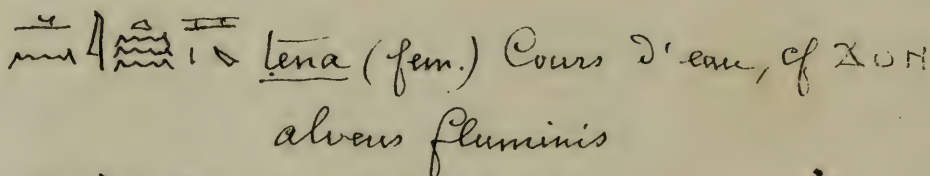 tena (fem.) Cours d'eau, cf ϪⲞⲚ
alveus fluminis